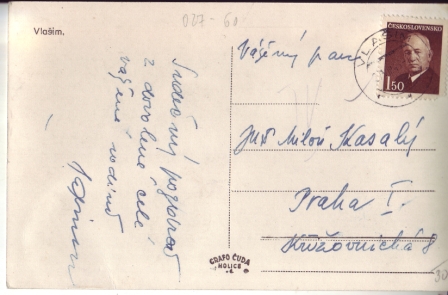 027-60
Vlašim.
Srdečný pozdrav
z dovolené celé
vážené rodině
ČESKOSLOVENSKO
1.50
VLAŠ
Vážený pan
JUDr Miloš Kasalý
Praha I.
Křižovnická 8
GRAFO ČUDA
HOLICE
30